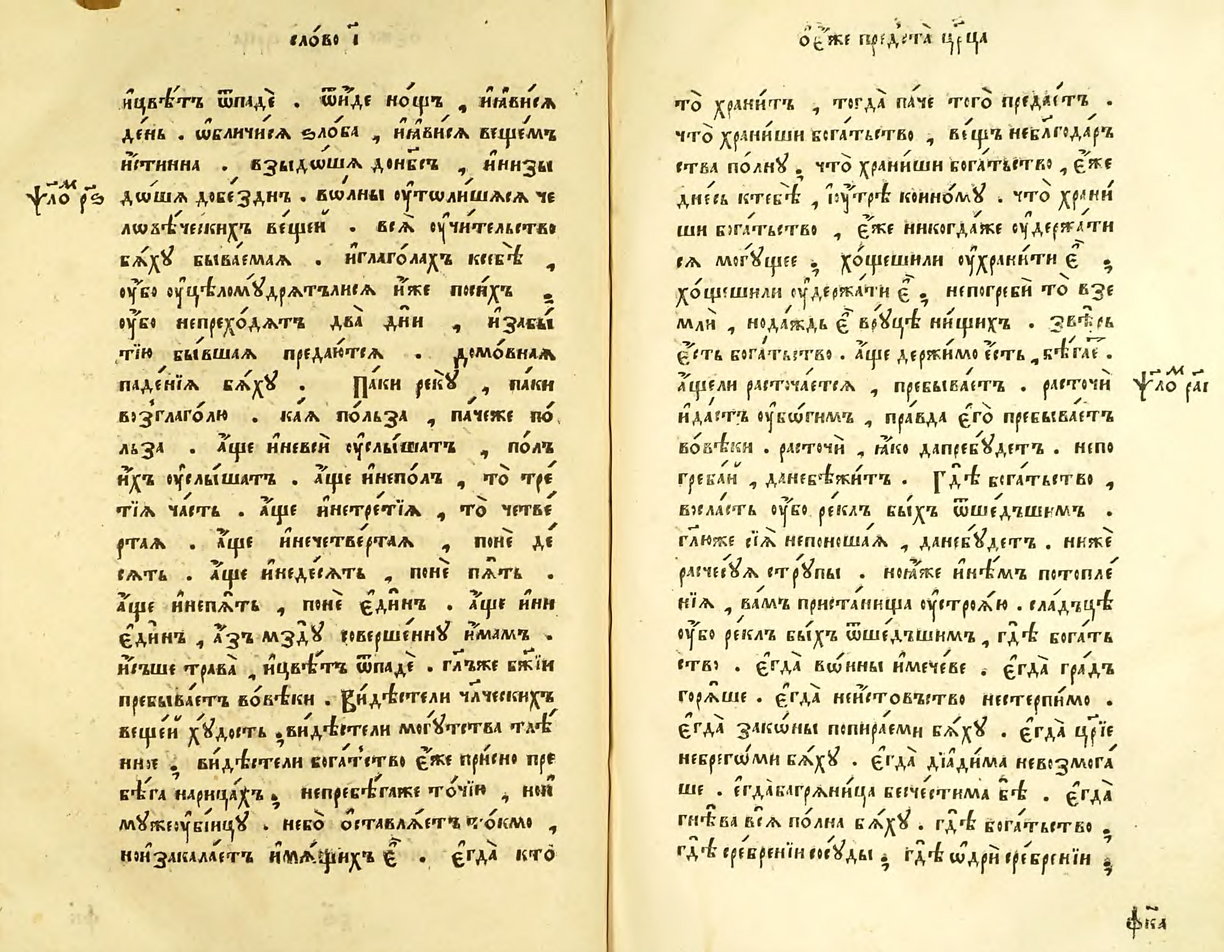 сло́во і҃
и҆цвѣ́тъ ѿпадѐ . ѿи́де но́щь , и҆ꙗ҆ви́сѧ
де́нь . ѡ҆бличи́сѧ ѕло́ба , и҆ꙗ҆ви́сѧ ве́щемъ
и҆́стинна . взыдо́шѧ донб҃съ , и҆низы
ѱало́м р҃ѕ
до́шѧ добе́зднъ . вѡ́лны ᲂу҆толи́шѧсѧ че
лѡвѣ́ческихъ ве́щей . всѧ̀ ᲂу҆чи́тельство
бѧ́хꙋ быва́емаѧ . и҆глаго́лахъ ксебѣ̀ ,
ᲂу҆́бо ᲂу҆цѣломꙋ́дрѧтълисѧ и҆̀же поси́хъ ;
ᲂу҆́бо непрехо́дѧтъ два̀ дн҃и , и҆забы́
тїю бы́вшаѧ предаю́тсѧ . домо́внаѧ
паде́нїѧ бѧ́хꙋ . Па́ки рекꙋ̀ , па́ки
возглаго́лю . ка́ѧ по́льза , па́чеже по́
льза . а҆́ще и҆невсѝ ᲂу҆слы́шатъ , по́лъ
и҆́хъ ᲂу҆слы́шатъ . а҆́ще и҆непо́лъ , то̀ тре́
тїѧ ча́сть . а҆́ще и҆нетре́тїѧ , то̀ четве́
ртаѧ . а҆́ще и҆нечетве́ртаѧ , понѐ де́
сѧть . а҆́ще и҆неде́сѧть , понѐ пѧ́ть .
а҆́ще и҆непѧ́ть , понѐ є҆ди́нъ . а҆́ще и҆ни
є҆ди́нъ , а҆́зъ мздꙋ̀ соверше́ннꙋ и҆́мамъ .
и҆́сше трава̀ , и҆цвѣ́тъ ѿпадѐ . гл҃ъже бж҃їи
пребыва́етъ во́вѣки . Ви́дѣстели чл҃ческихъ
веще́й хꙋ́дость ; ви́дѣстели могꙋ́тства тлѣ́
ние ; ви́дѣстели бога́тство є҆́же при́сно пре
бѣ́га нарица́хъ ; непребѣ́гаже то́чїю , ноѝ
мꙋжеᲂу҆би́йцꙋ . небо̀ ѡ҆ставлѧ́етъ то́кмо ,
ноѝзакала́етъ и҆мꙋ́щихъ є҆̀ . є҆гда̀ кто̀
ѡ҆є҆́же предста̀ цр҃ца
то̀ храни́тъ , тогда̀ па́че того̀ преда́стъ .
что̀ храни́ши бога́тьство , ве́щь неблагода́р
ства по́лнꙋ . что̀ храни́ши бога́тьство , є҆́же
дне́сь ктебѣ̀ , ю҆ꙋ́трѣ коино́мꙋ . что̀ храни́
ши бога́тьство , є҆́же никогда́же ᲂу҆держа́ти
сѧ могꙋ́щее ; хо́щешили ᲂу҆храни́ти є҆̀ ;
хо́щешили ᲂу҆держа́ти є҆̀ ; непогребѝ то̀ взе
млѝ , нода́ждь є҆̀ врꙋ́цѣ ни́щихъ . звѣ́рь
є҆́сть бога́тьство . а҆́ще держи́мо є҆́сть , бѣ́гает .
а҆́щели расточа́етсѧ , пребыва́етъ . расточѝ
ѱало́м р҃аі
и҆да́стъ ᲂу҆бѡ́гимъ , пра́вда є҆гѡ̀ пребыва́етъ
во́вѣки . расточѝ , ꙗ҆́ко дапребꙋ́детъ . непо
греба́й , данебѣжи́тъ . Гдѣ̀ бога́тьство ,
всласть ᲂу҆́бо ре́клъ бы́хъ ѿше́дъшимъ .
гл҃юже сїѧ̀ непоноша́ѧ , данебꙋ́детъ . нижѐ
расчесꙋ́ѧ стрꙋ́пы . ноꙗ҆́же и҆нѣ́мъ потопле́
нїѧ , ва́мъ приста́нища ᲂу҆строѧ́ю . сла́дъцѣ
ᲂу҆́бо ре́клъ бы́хъ ѿше́дъшимъ , гдѣ̀ бога́ть
ство . є҆гда̀ вѡ́ины и҆ме́чеве . є҆гда̀ гра́дъ
горѧ́ше . є҆гда̀ неи́стовъство нестерпи́мо .
є҆гда̀ зако́ны попира́еми бѧ́хꙋ . є҆гда̀ цр҃їе
небрего́ми бѧ́хꙋ . є҆гда̀ дїади́ма невозмога́
ше . є҆гда̀багрѧни́ца бесчести́ма бѣ̀ . є҆гда̀
гнѣ́ва всѧ̀ по́лна бѧ́хꙋ . гдѣ̀ бога́тьство ;
гдѣ̀ сре́бренїи сосꙋ́ды ; гдѣ̀ ѻ҆дрѝ сре́бренїи ;
ф҃ка